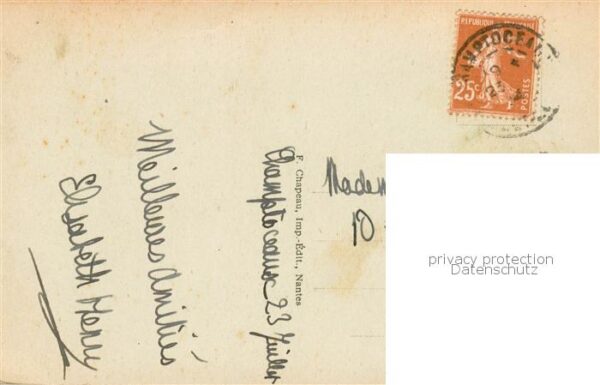 Champtoceaux 23 Juillet
Meilleures Amitiés
Elisabeth Henry
F. Chapeau, Imp.-Édit., Nantes
REPUBLIQUE FRANÇAISE
25c
POSTES
10
privacy protection
Datenschutz